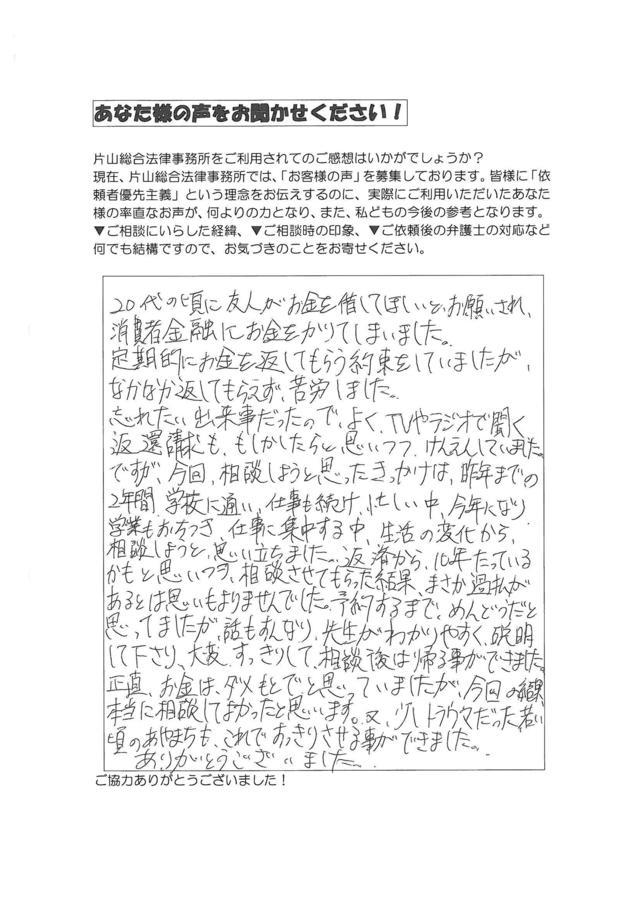 あなた様の声をお聞かせください！
片山総合法律事務所をご利用されてのご感想はいかがでしょうか？
現在、片山総合法律事務所では、「お客様の声」を募集しております。皆様に「依
頼者優先主義」という理念をお伝えするのに、実際にご利用いただいたあなた
様の率直なお声が、何よりの力となり、また、私どもの今後の参考となります。
▼ご相談にいらした経緯、▼ご相談時の印象、▼ご依頼後の弁護士の対応など
何でも結構ですので、お気づきのことをお寄せください。
20代の頃に友人がお金を借してほしいと、お願いされ、
消費者金融にお金をかりてしまいました。
定期的にお金を返してもらう約束をしていましたが、
なかなか返してもらえず、苦労しました。
忘れたい出来事だったので、よく、TVやラジオで聞く
返還請求も、もしかしたらと思いつつ、けんえんしていました。
ですが、今回、相談しようと思ったきっかけは、昨年までの
2年間 学校に通い、仕事も続け、忙しい中、今年になり
学業もおちつき、仕事に集中する中、生活の変化から、
相談しようと、思い立ちました。返済から、10年たっている
かもと思いつつ、相談させてもらった結果、まさか過払が
あるとは思いもよりませんでした。予約するまで、めんどうだと
思ってましたが、話もすんなり、先生がわかりやすく、説明
して下さり、大変、すっきりして、相談後は帰る事ができました。
正直、お金は、ダメもとでと思っていましたが、今回の結果、
本当に相談してよかったと思います。又、少しトラウマだった若い
頃のあやまちも、これですっきりさせる事ができました。
ありがとうございました。
ご協力ありがとうございました！